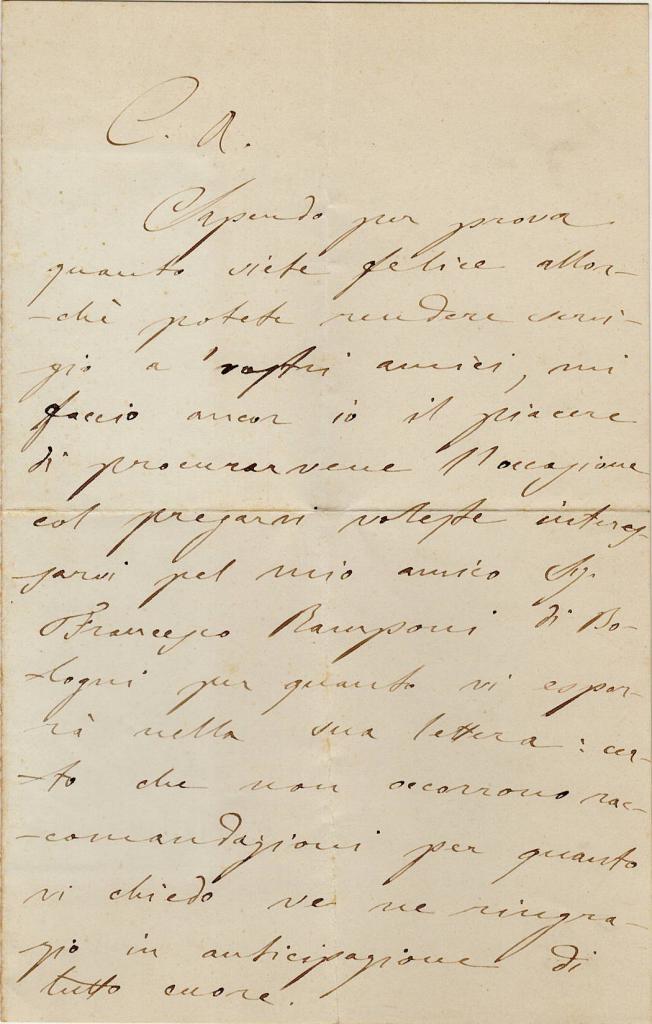 C. A.
Sapendo per prova
quanto siete felice allor-
-chè potete rendere servi-
gio a' vostri amici, mi
faccio ancor io il piacere
di procurarvene l'occasione
col pregarvi voleste interes-
sarvi pel mio amico Sig.
Francesco Ramponi di Bo-
-logni per quanto vi espor-
rà nella sua lettera: cer-
-to che non occorrono rac-
-comandazioni per quanto
vi chiedo ve ne ringra-
zio in anticipazione di
tutto cuore.